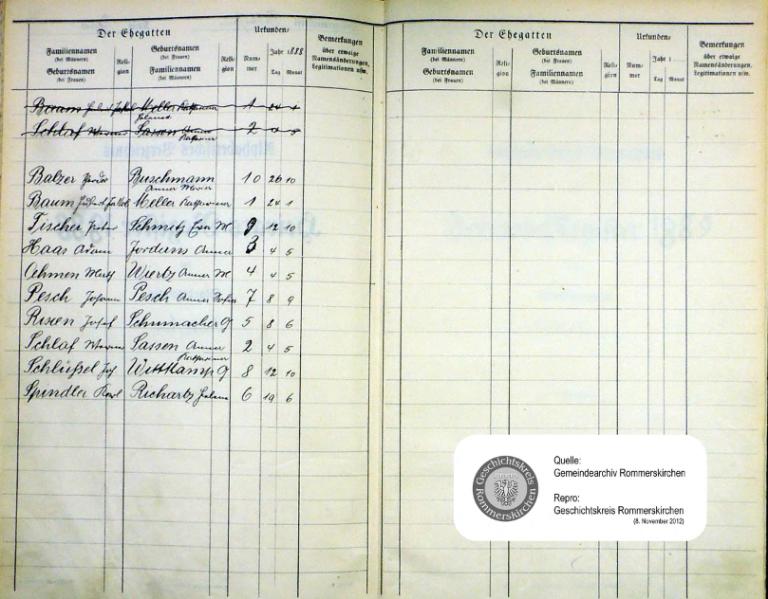 Der Ehegatten
Urkunden=
Bemerkungen
über etwaige
Namensänderungen,
Legitimationen usw.
Familiennamen
(bei Männern)
Geburtsnamen
(bei Frauen)
Reli-
gion
Geburtsnamen
(bei Frauen)
Familiennamen
(bei Männern)
Reli-
gion
Num-
mer
Jahr 1888
Tag Monat
Baum Meller 1 24 1
Schlaf Sassen 2 4 5
Balzer Buschmann 10 26 10
Anna Maria
Baum Meller 1 24 1
Fischer Schmitz Eva M 9 12 10
Haas Adam Jordans Anna 3 4 5
Oehmen Wiertz Anna M 4 4 5
Pesch Johann Pesch Anna 7 8 9
Rixen Josef Schumacher G 5 8 6
Schlaf Sassen Anna 2 4 5
Schlüssel Jos Wittkamp G 8 12 10
Spindler Karl Richartz 6 19 6
Der Ehegatten
Urkunden=
Bemerkungen
über etwaige
Namensänderungen,
Legitimationen usw.
Familiennamen
(bei Männern)
Geburtsnamen
(bei Frauen)
Reli-
gion
Geburtsnamen
(bei Frauen)
Familiennamen
(bei Männern)
Reli-
gion
Num-
mer
Jahr 1
Tag Monat
Geschichtskreis
Rommerskirchen
Quelle:
Gemeindearchiv Rommerskirchen
Repro:
Geschichtskreis Rommerskirchen
(8. November 2012)